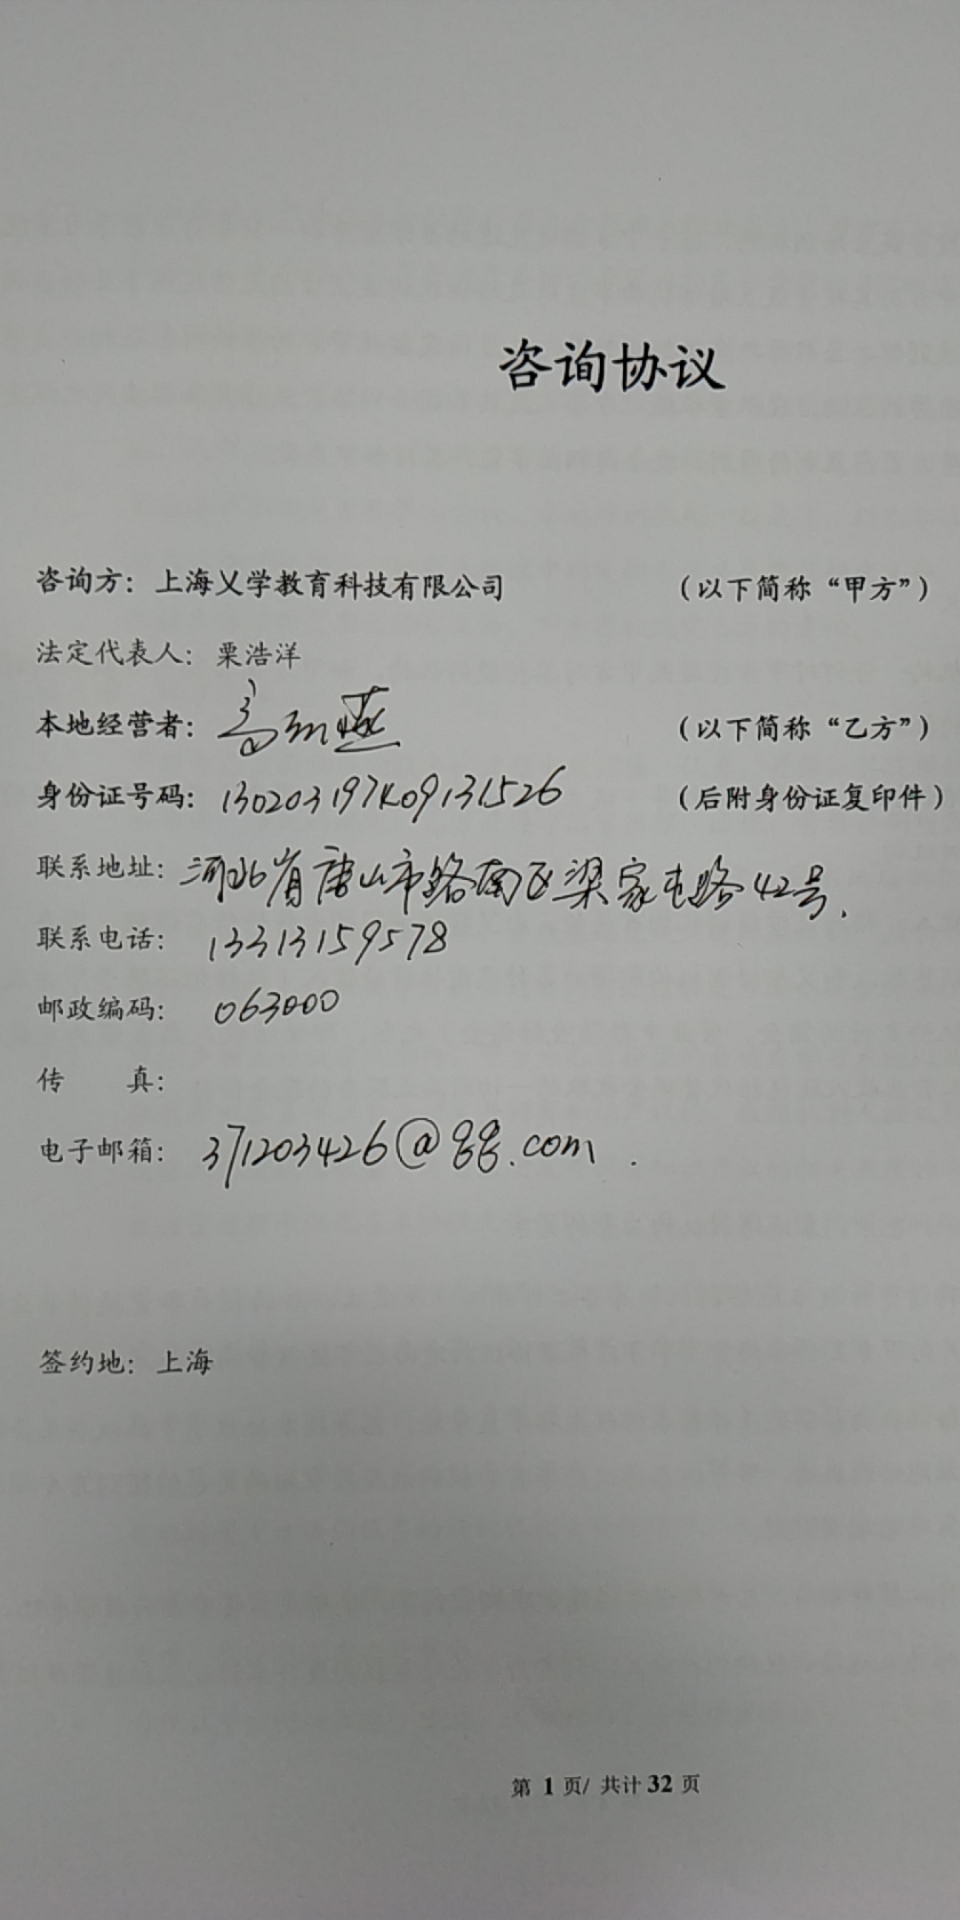 咨询协议
咨询方：上海乂学教育科技有限公司 （以下简称“甲方”）
法定代表人：栗浩洋
本地经营者：高 燕 （以下简称“乙方”）
身份证号码： （后附身份证复印件）
联系地址：河北省唐山市路南区梁家屯路42号.
联系电话：13313159578
邮政编码：063000
传 真：
电子邮箱：371203426@qq.com.
签约地：上海
第 1 页/ 共计 32 页